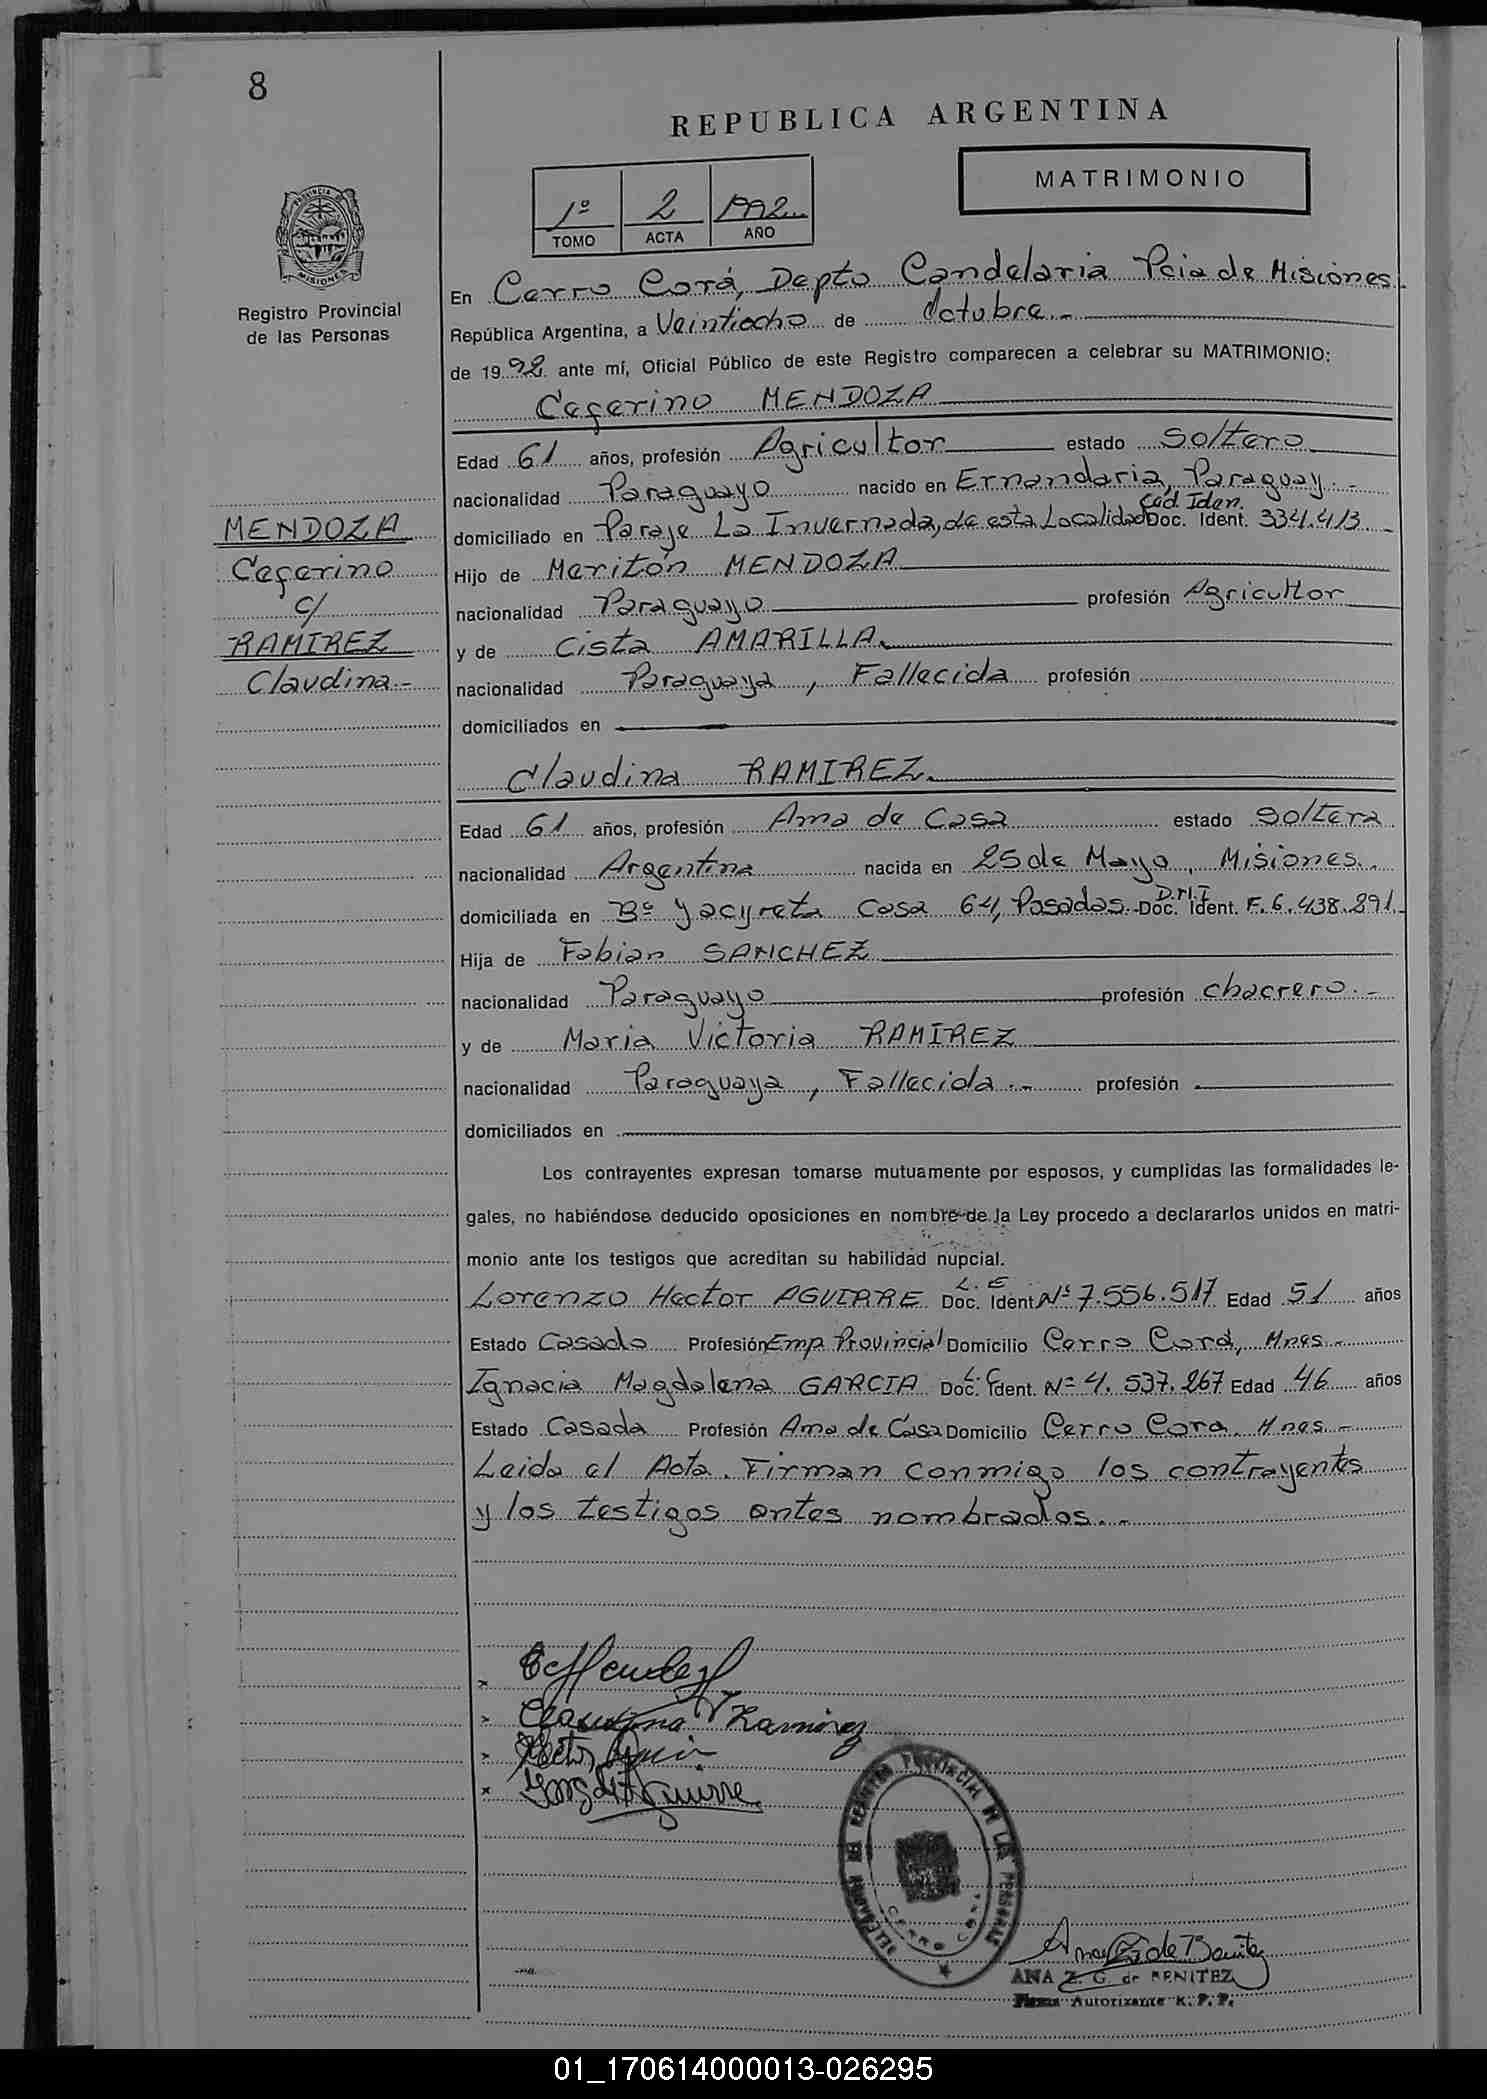 8
REPUBLICA ARGENTINA
MATRIMONIO
1º 2 1992
TOMO ACTA AÑO
PROVINCIA DE MISIONES
Registro Provincial
de las Personas
En Cerro Corá, Depto Candelaria Pcia de Misiones.
República Argentina, a Veintiocho de Octubre.-
de 1992 ante mí, Oficial Público de este Registro comparecen a celebrar su MATRIMONIO:
Ceferino MENDOZA
Edad 61 años, profesión Agricultor estado Soltero
nacionalidad Paraguayo nacido en Ernandaria, Paraguay.-
Ced. Iden.
domiciliado en Paraje La Invernada, de esta Localidad Doc. Ident. 334.413.-
Hijo de Meritón MENDOZA
nacionalidad Paraguayo profesión Agricultor
y de Cista AMARILLA.
nacionalidad Paraguaya, Fallecida profesión
domiciliados en
MENDOZA
Ceferino
c/
RAMIREZ
Claudina.-
Claudina RAMIREZ.
Edad 61 años, profesión Ama de Casa estado Soltera
nacionalidad Argentina nacida en 25 de Mayo, Misiones.
D.N.I
domiciliada en Bº Yacyreta Casa 64, Posadas.- Doc. Ident. F.6.438.891.-
Hija de Fabian SANCHEZ
nacionalidad Paraguayo profesión chacrero.-
y de Maria Victoria RAMIREZ
nacionalidad Paraguaya, Fallecida.- profesión
domiciliados en
Los contrayentes expresan tomarse mutuamente por esposos, y cumplidas las formalidades le-
gales, no habiéndose deducido oposiciones en nombre de la Ley procedo a declararlos unidos en matri-
monio ante los testigos que acreditan su habilidad nupcial.
L.E
Lorenzo Hector AGUIRRE Doc. Ident Nº 7.556.517 Edad 51 años
Estado Casado Profesión Emp Provincial Domicilio Cerro Corá, Mnes.-
L.C
Ignacia Magdalena GARCIA Doc. Ident. Nº 4.537.267 Edad 46 años
Estado Casada Profesión Ama de Casa Domicilio Cerro Cora. Mnes.-
Leida el Acta. Firman conmigo los contrayentes
y los testigos antes nombrados.-
Claudina Ramirez
DELEGACION DEL REGISTRO PROVINCIAL DE LAS PERSONAS
CERRO CORA
Ana G de Benitez
ANA Z. G. de BENITEZ
Firma Autorizante R. P. P.
01_170614000013-026295